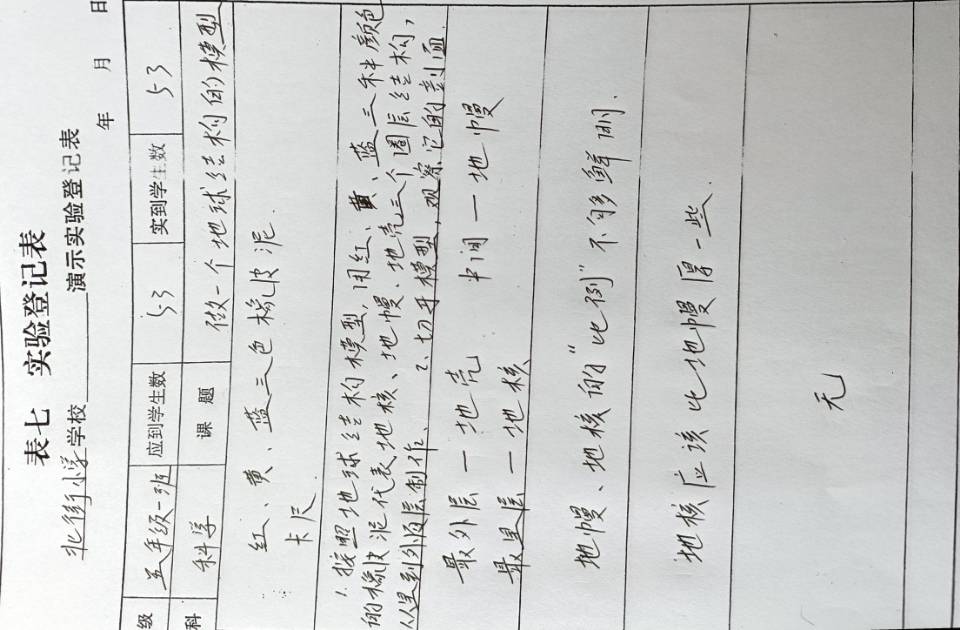 表七 实验登记表
北街小学学校 演示实验登记表
年 月 日
级 五年级一班 应到学生数 53 实到学生数 53
科 科学 课题 做一个地球结构的模型
红、黄、蓝三色橡皮泥
卡尺
1.按照地球结构模型,用红、黄、蓝三种颜色
的橡皮泥代表地核、地幔、地壳三个圈层结构,
从里到外层制作、2.切开模型,观察它的剖面
最外层一地壳 中间一地幔
最里层一地核
地幔、地核的"比例"不够鲜明.
地核应该比地幔厚一些.
无